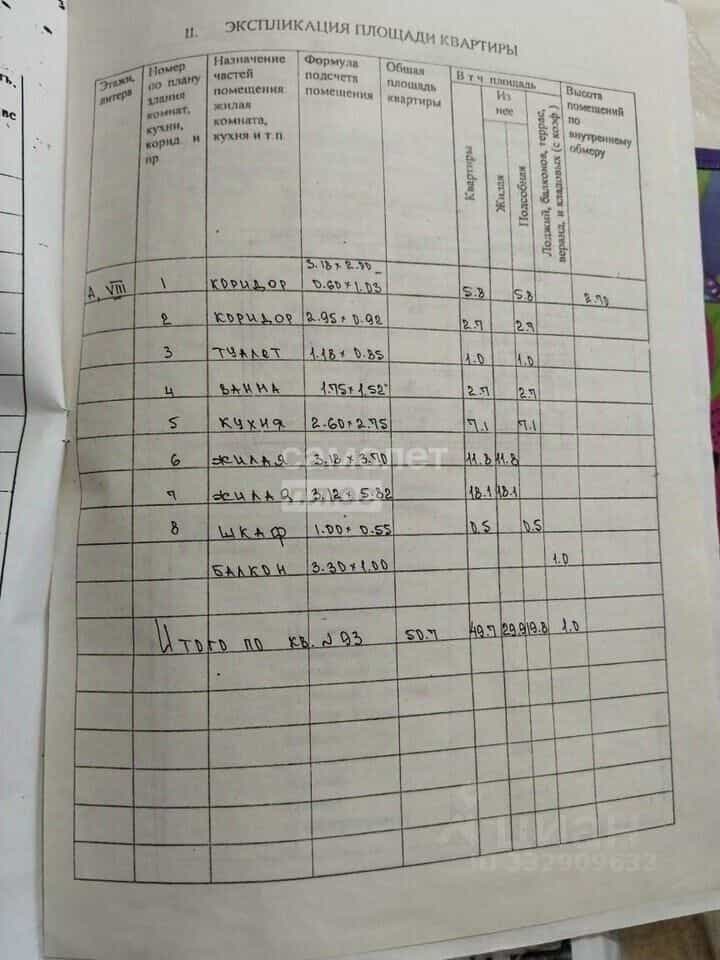 II. ЭКСПЛИКАЦИЯ ПЛОЩАДИ КВАРТИРЫ
Этажи, литера
Номер по плану здания комнат, кухни, корид. и пр
Назначение частей помещения жилая комната, кухня и т.п
Формула подсчета помещения
Общая площадь квартиры
В т ч площадь
Квартиры
Из нее
Жилая
Подсобная
Лоджий, балконов, террас, веранд, и кладовых (с коэф.)
Высота помещений по внутреннему обмеру
3.18 × 2.90 -
А, VIII 1 КОРИДОР 0.60 × 1.03 5.8 5.8 2.70
2 КОРИДОР 2.95 × 0.92 2.7 2.7
3 ТУАЛЕТ 1.18 × 0.85 1.0 1.0
4 ВАННА 1.75 × 1.52 2.7 2.7
5 КУХНЯ 2.60 × 2.75 7.1 7.1
6 ЖИЛАЯ 3.18 × 3.70 11.8 11.8
7 ЖИЛАЯ 3.12 × 5.82 18.1 18.1
8 ШКАФ 1.00 × 0.55 0.5 0.5
БАЛКОН 3.30 × 1.00 1.0
Итого по кв. № 93 50.7 49.7 29.9 19.8 1.0
самолет
плюс
циан
ID 332909633